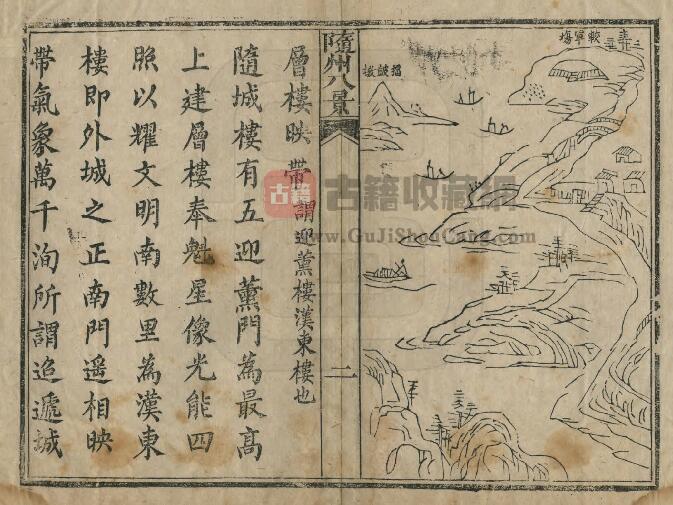 較軍場
擂鼓墩
隨州八景
二
層樓映帶 謂迎薰樓漢東樓也
隨城樓有五迎薰門為最高
上建層樓奉魁星像光能四
照以耀文明南數里為漢東
樓即外城之正南門遥相映
帶氣象萬千洵所謂迢遞城
古籍
古籍收藏網
www.GuJiShouCang.com